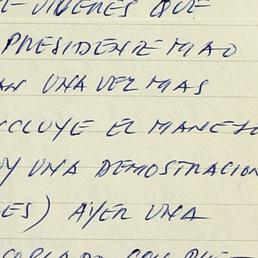 E VIVERES QUE
PRESIDENTE MAO
AN UNA VEZ MAS
CLUYE EL MANEJO
Y UNA DEMOSTRACION
ES) AYER UNA